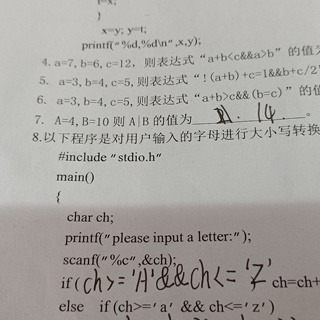 t=x;
}
x=y; y=t;
printf("%d,%d\n",x,y);
4. a=7, b=6, c=12, 则表达式“a+b<c&&a>b”的值为
5. a=3, b=4, c=5, 则表达式“!(a+b)+c=1&&b+c/2”
6. a=3, b=4, c=5, 则表达式“a+b>c&&(b=c)”的值
7. A=4, B=10 则 A|B 的值为 14 。
8. 以下程序是对用户输入的字母进行大小写转换
#include "stdio.h"
main()
{
char ch;
printf("please input a letter:");
scanf("%c",&ch);
if(ch>='A'&&ch<='Z' ch=ch+
else if(ch>='a' && ch<='z')